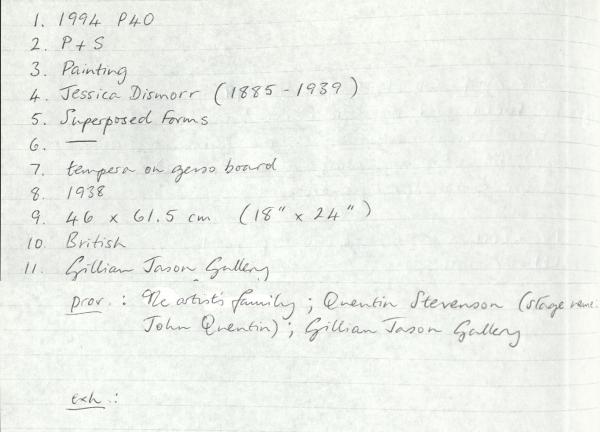 1. 1994 P40
2. P + S
3. Painting
4. Jessica Dismorr (1885 - 1939)
5. Superposed Forms
6. —
7. tempera on gesso board
8. 1938
9. 46 x 61.5 cm (18" x 24")
10. British
11. Gillian Jason Gallery
prov. : The artist's family ; Quentin Stevenson (stage name
John Quentin) ; Gillian Jason Gallery
exh. :